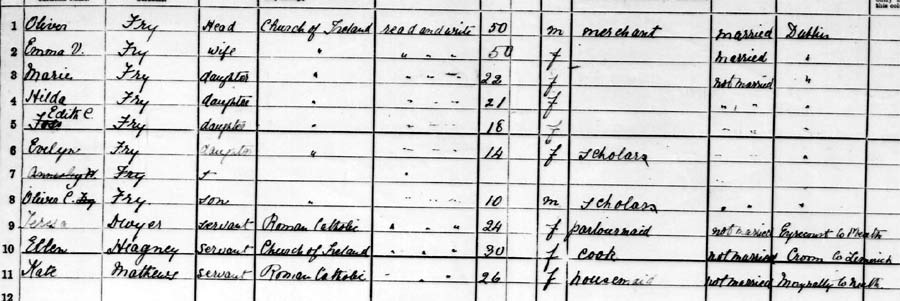 1 Oliver Fry Head Church of Ireland read and write 50 m merchant married Dublin
2 Emma V. Fry wife " " " " 50 f married "
3 Marie Fry daughter " " " " 22 f not married "
4 Hilda Fry daughter " " " " 21 f " " "
Edith C
5 Fry daughter " " " " 18 f " " "
6 Evelyn Fry daughter " " " " 14 f scholar " " "
7 Fry "
8 Oliver C. Fry Fry son " 10 m scholar " " "
9 Teresa Dwyer servant Roman Catholic " " " " 24 f parlourmaid not married Eyrecourt Co
10 Ellen Heagney servant Church of Ireland " " " 30 f cook not married Croom Co Limerick
11 Kate Mathews servant Roman Catholic " " " 26 f housemaid not married Co Meath
12